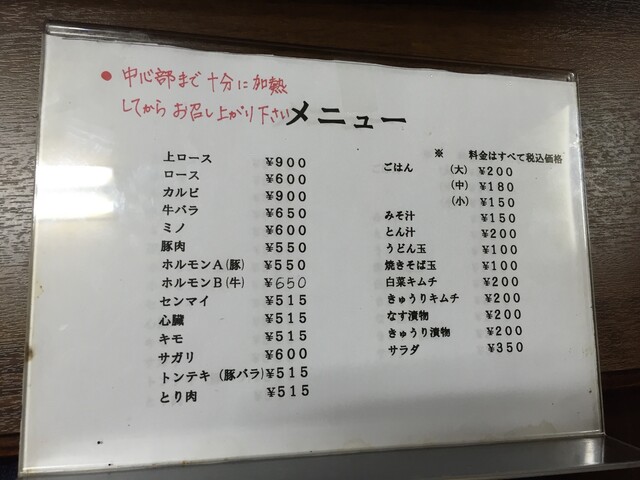 ● 中心部まで十分に加熱
してからお召し上がり下さい
メニュー
上ロース ¥900
ロース ¥600
カルビ ¥900
牛バラ ¥650
ミノ ¥600
豚肉 ¥550
ホルモンA(豚) ¥550
ホルモンB(牛) ¥650
センマイ ¥515
心臓 ¥515
キモ ¥515
サガリ ¥600
トンテキ(豚バラ) ¥515
とり肉 ¥515
※ 料金はすべて税込価格
ごはん (大) ¥200
(中) ¥180
(小) ¥150
みそ汁 ¥150
とん汁 ¥200
うどん玉 ¥100
焼きそば玉 ¥100
白菜キムチ ¥200
きゅうりキムチ ¥200
なす漬物 ¥200
きゅうり漬物 ¥200
サラダ ¥350